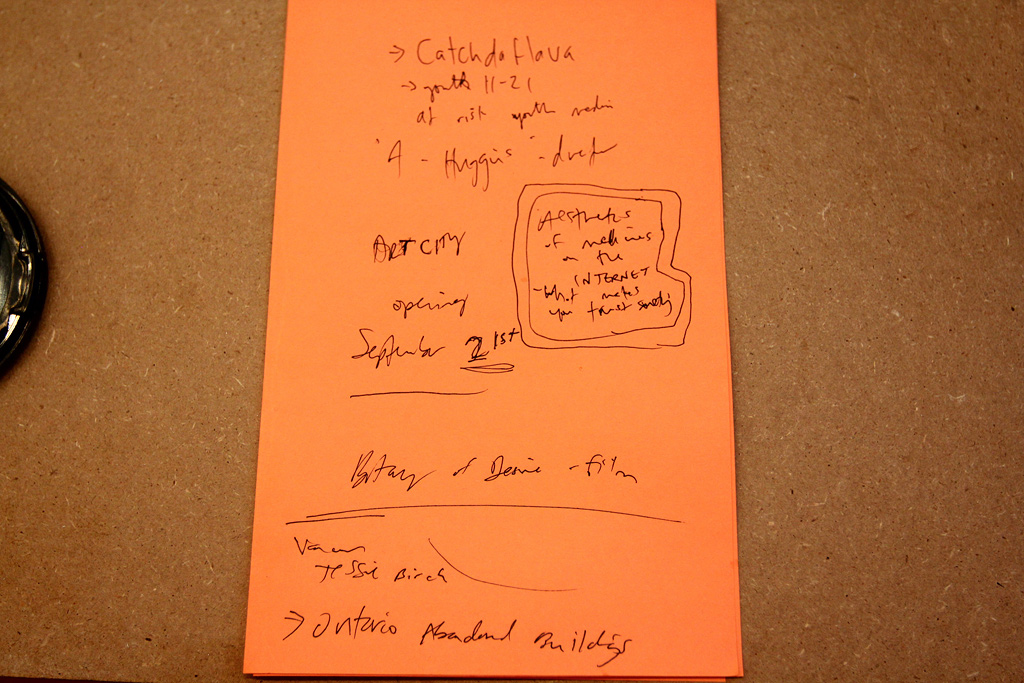 → Catchdaflava
→ youth 11-21
at risk youth media
"A - Huggins" -
ART CITY
opening
September 21st
Aesthetics
of machines
on the
INTERNET
- What makes
you trust
Botany of Desire - film
Jessie Birch
→ Ontario Abandond Buildings